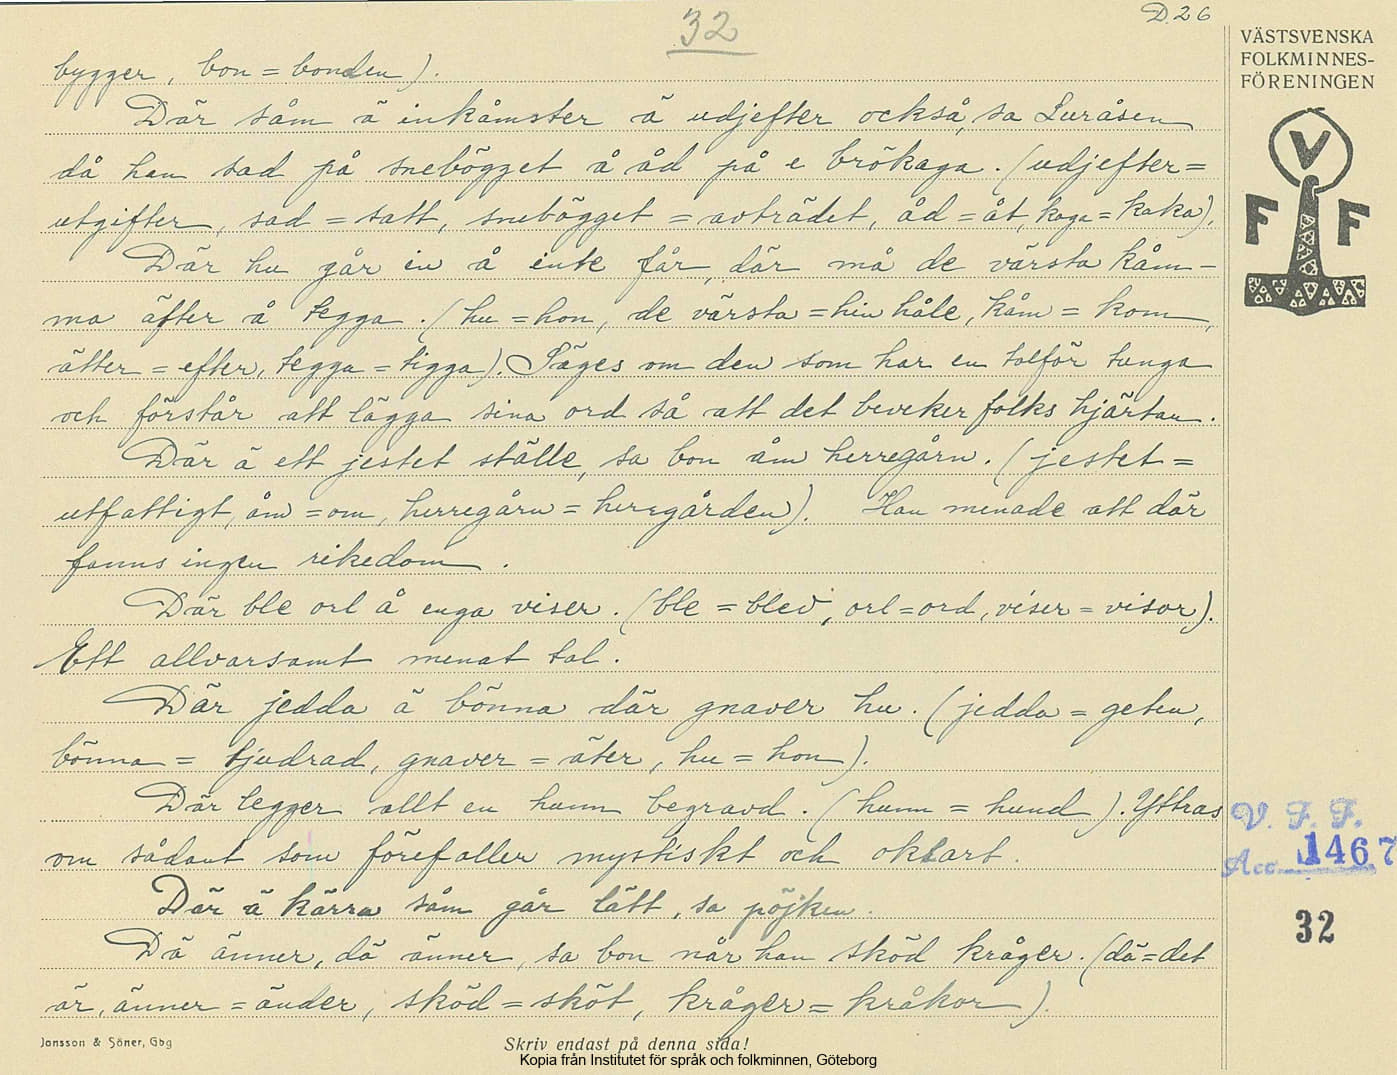 32
D.26
VÄSTSVENSKA
FOLKMINNES-
FÖRENINGEN
V
F F
bygger, bon = bonden).
Där såm ä inkåmster ä udjefter också, sa Luråsen
då han sad på snebögget å åd på e brökaga. (udjefter =
utgifter, sad = satt, snebögget = avträdet, åd = åt, kaga = kaka).
Där hu går in å inte får, där må de värsta kåm-
ma äfter å tegga. (hu = hon, de värsta = hin håle, kåm = kom,
äfter = efter, tegga = tigga). Säges om den som har en talför tunga
och förstår att lägga sina ord så att det beveker folks hjärtan.
Där ä ett jestet ställe, sa bon åm herregårn. (jestet =
utfattigt, åm = om, herregårn = herrgården). Han menade att där
fanns ingen rikedom.
Där ble orl å enga viser. (ble = blev, orl = ord, viser = visor).
Ett allvarsamt menat tal.
Där jedda ä bönna där gnaver hu. (jedda = geten,
bönna = tjudrad, gnaver = äter, hu = hon).
Där legger allt en hunn begravd. (hunn = hund). Yttras
om sådant som förefaller mystiskt och oklart.
Där ä kärra såm går lätt, sa pöjken.
Dä änner, dä änner, sa bon når han sköd kråger. (dä = det
är, änner = änder, sköd = sköt, kråger = kråkor).
V. F. F.
Acc. 1467
32
Jonsson & Söner, Gbg
Skriv endast på denna sida!
Kopia från Institutet för språk och folkminnen, Göteborg